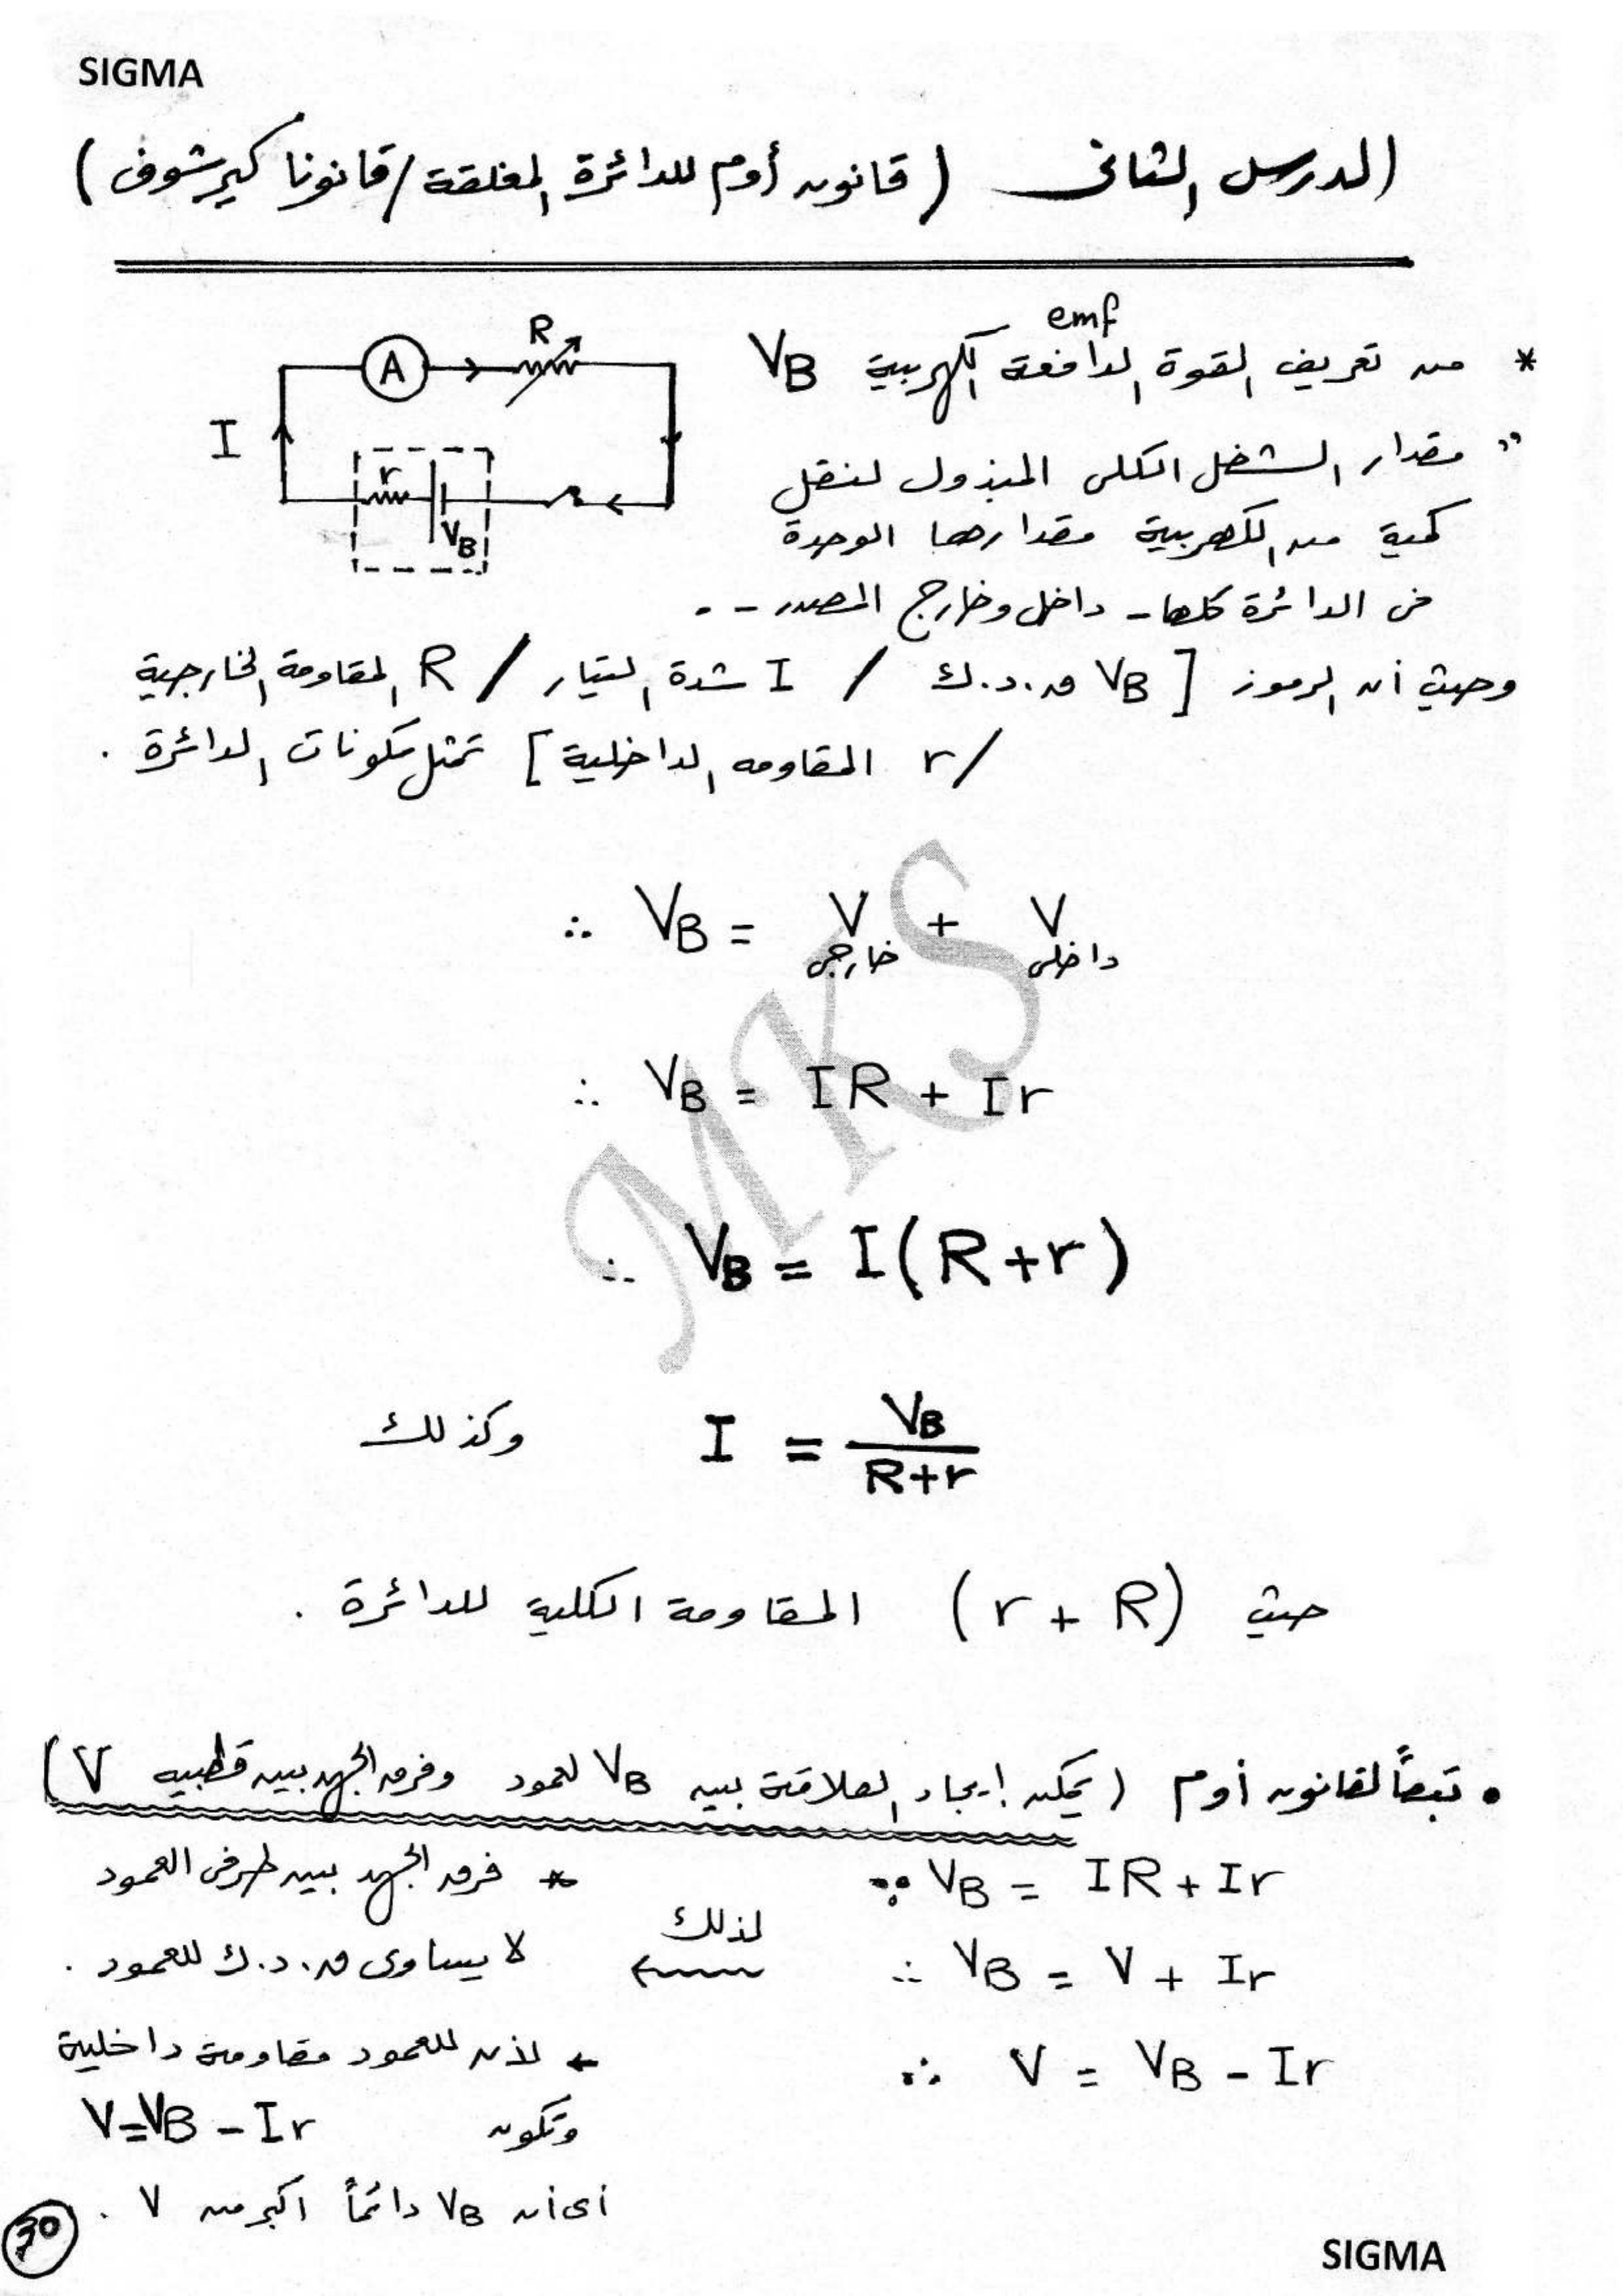 SIGMA
الدرس الثانى ( قانون أوم للدائرة المغلقة / قانونا كيرشوف )
* من تعريف القوة الدافعة الكهربية VB
emf
" مقدار الشغل الكلى المبذول لنقل
كمية من الكهربية مقدارها الوحدة
فى الدائرة كلها - داخل وخارج المصدر - -
A
R
I
r
VB
وحيث أن الرموز [ VB ق.د.ك / I شدة التيار / R المقاومة الخارجية
/ r المقاومه الداخلية ] تمثل مكونات الدائرة .
∴ VB = V خارجى + V داخلى
∴ VB = IR + Ir
∴ VB = I(R+r)
وكذلك I = VB / R+r
حيث (r + R) المقاومة الكلية للدائرة .
• تبعاً لقانون أوم ( يمكن إيجاد العلاقة بين VB لعمود وفرق الجهد بين قطبيه V )
∵ VB = IR + Ir
∴ VB = V + Ir
∴ V = VB - Ir
لذلك
* فرق الجهد بين طرفى العمود
لا يساوى ق.د.ك للعمود .
← لأن للعمود مقاومة داخلية
وتكون V = VB - Ir
أى أن VB دائماً اكبر من V .
MKS
SIGMA